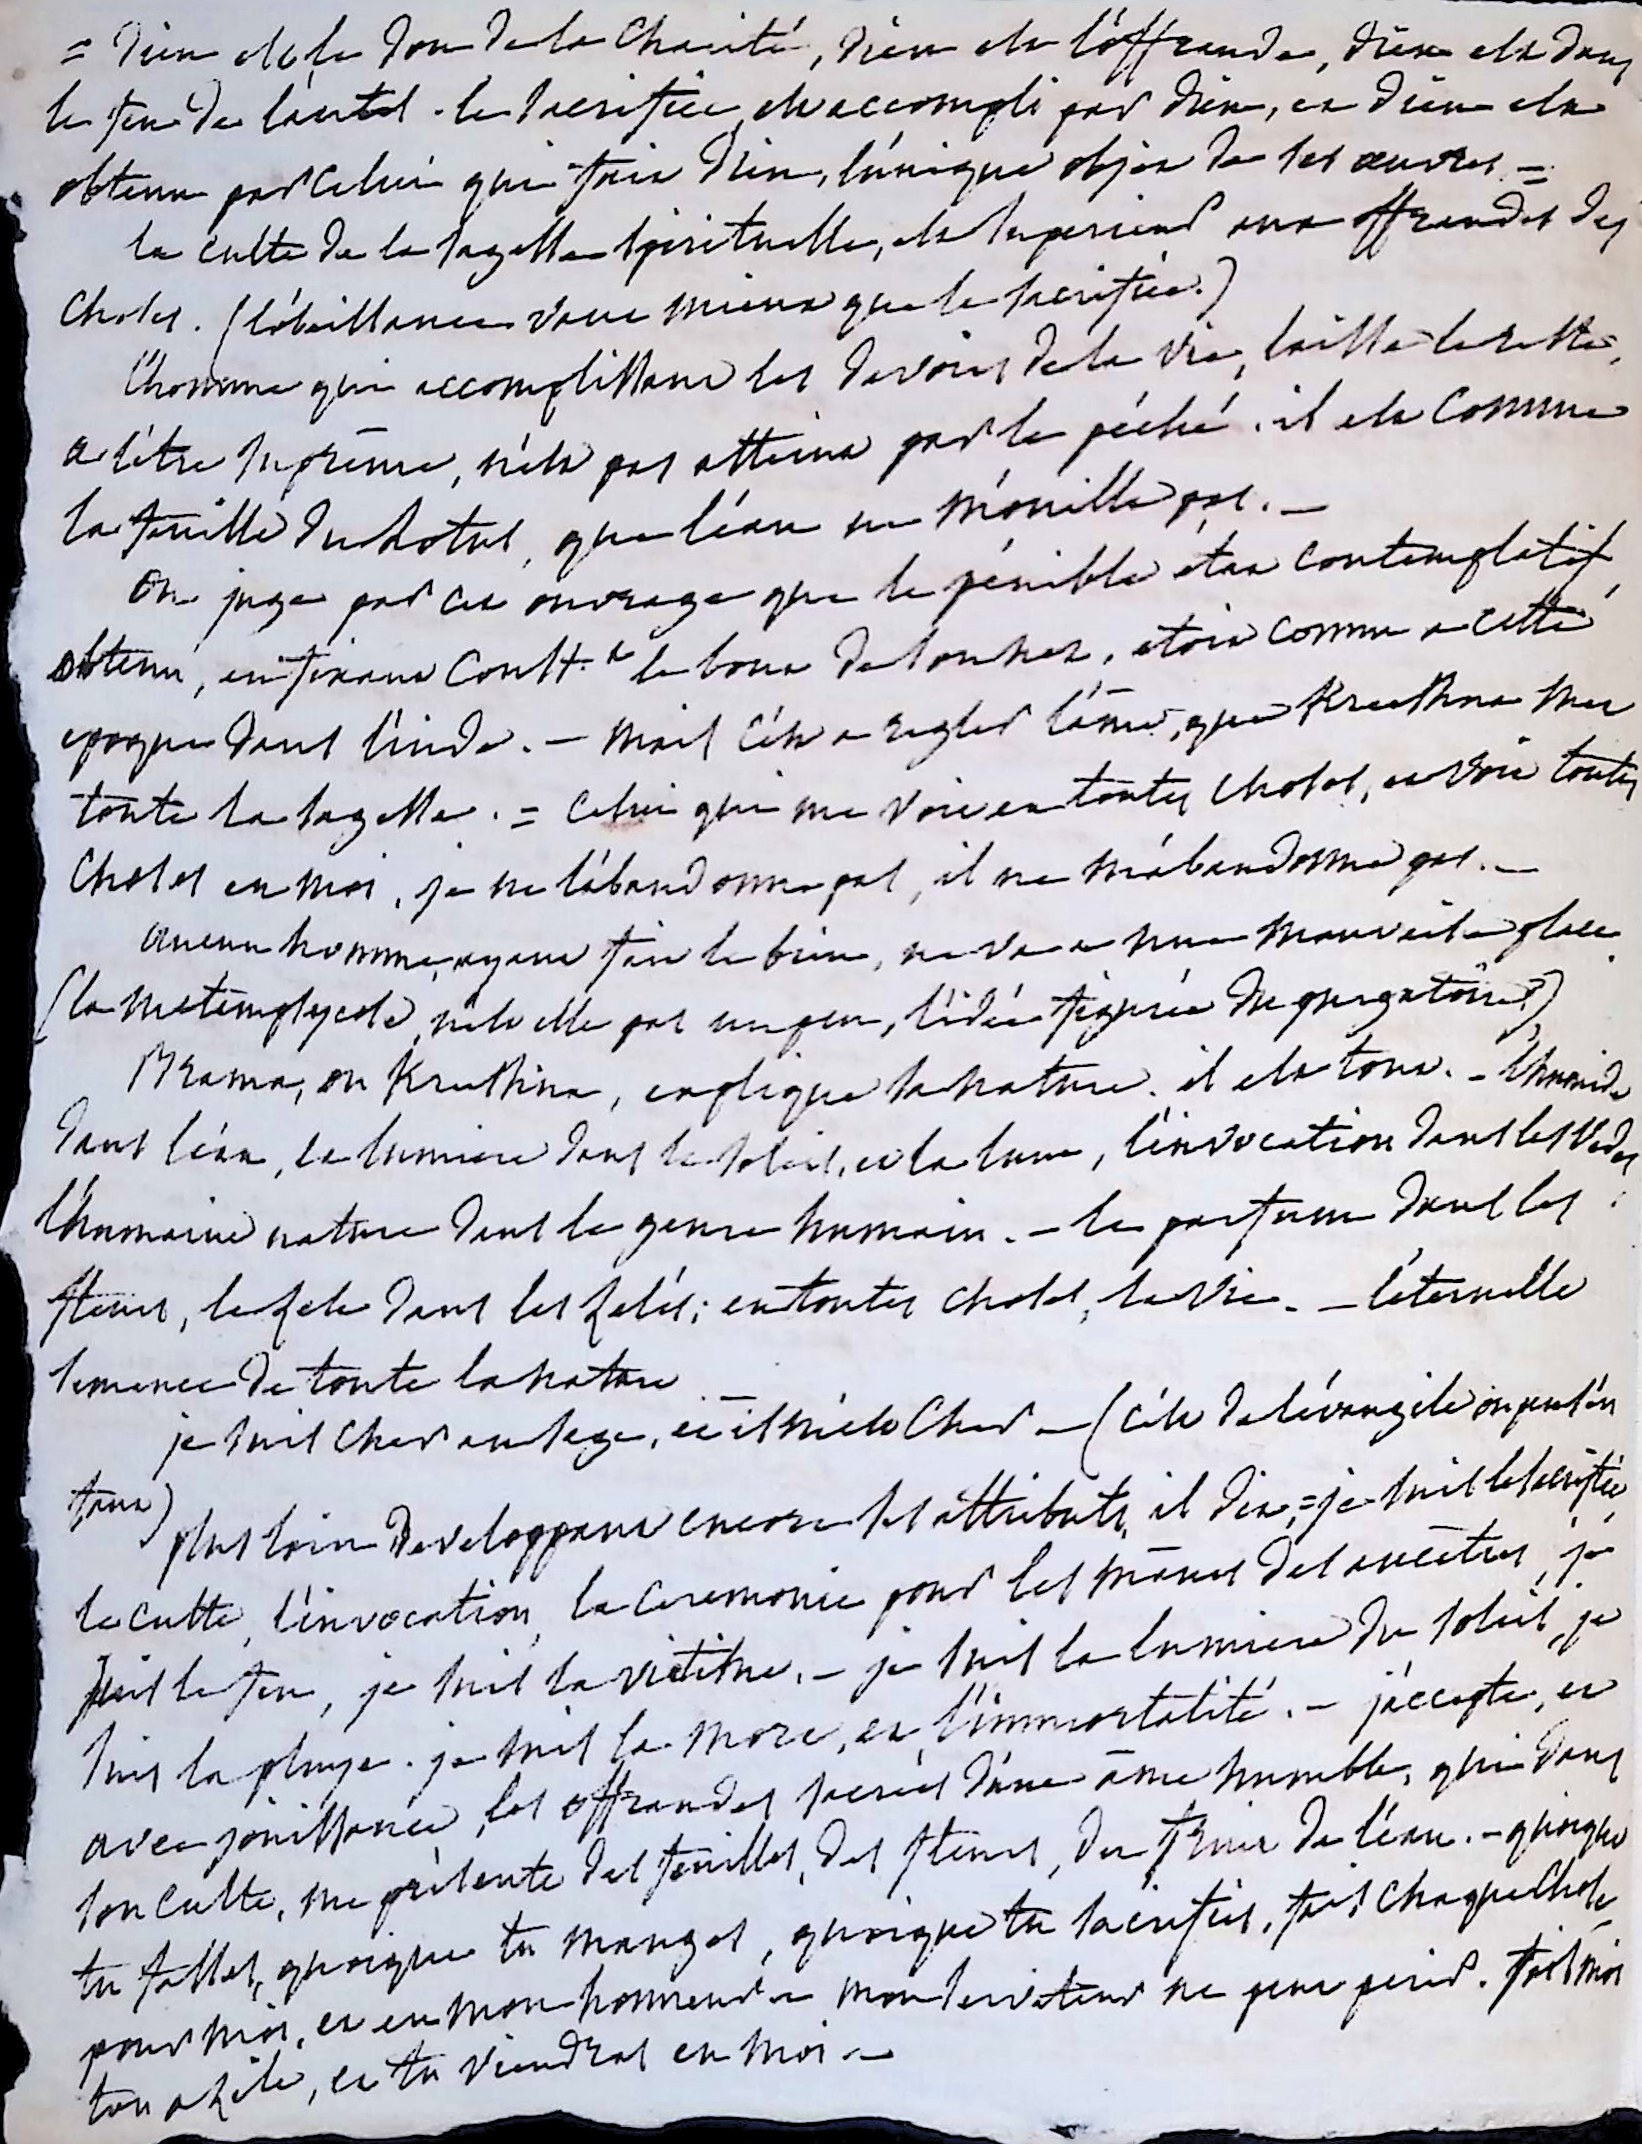 = Dieu est le don de la charité, Dieu est l'offrande, Dieu est dans
le feu de l'autel. le sacrifice est accompli par Dieu, et Dieu est
obtenu par celui qui fait Dieu, l'unique objet de ses œuvres =
le culte de la sagesse spirituelle, est superieur aux offrandes des
choses. (l'obeissance vaut mieux que le sacrifice.)
L'homme qui accomplissant les devoirs de la vie, laisse le reste,
a l'être suprême, n'est pas atteint par le péché. il est comme
la feuille du Lotus, que l'eau ne mouille pas. –
on juge par cet ouvrage que le pénible état contemplatif
obtenu, en fixant const.t le bout de son nez, étoit connu a cette
epoque dans l'inde. – mais c'est a regler l'âme, que Kreeshna met
toute la sagesse. = celui qui me voit en toutes choses, et voit toutes
choses en moi, je ne l'abandonne pas, il ne m'abandonne pas. –
aucun homme, ayant fait le bien, ne va a une mauvaise place.
(la métempsycose, n'est elle pas un peu, l'idée figurée du purgatoire?)
Brama, ou Kreeshna, explique sa nature. il est tout. – l'humide
dans l'eau, la lumiere dans le soleil, et la lune, l'invocation dans les Vedas
l'humaine nature dans le genre humain. – le parfum dans les
fleurs, le zele dans les zelés; en toutes choses, la vie. – l'éternelle
semence de toute la nature
je suis cher au sage, et il m'est cher – (c'est de l'évangile ou peut s'en
faut)
plus loin developpant encore ses attributs, il dit, = je suis le sacrifice,
le culte, l'invocation, la ceremonie pour les mânes des ancêtres, je
suis le feu, je suis la victime. – je suis la lumiere du soleil, je
suis la pluye. je suis la mort, et l'immortalité. – j'accepte, et
avec jouissance, les offrandes sacrées d'une âme humble, qui dans
son culte, me présente des feuilles, des fleurs, du fruit de l'eau. – quoique
tu fasses, quoique tu manges, quoique tu sacrifies, fais chaque chose
pour moi, et en mon honneur – mon serviteur ne peut perir. fais moi
ton azile, et tu viendras en moi –